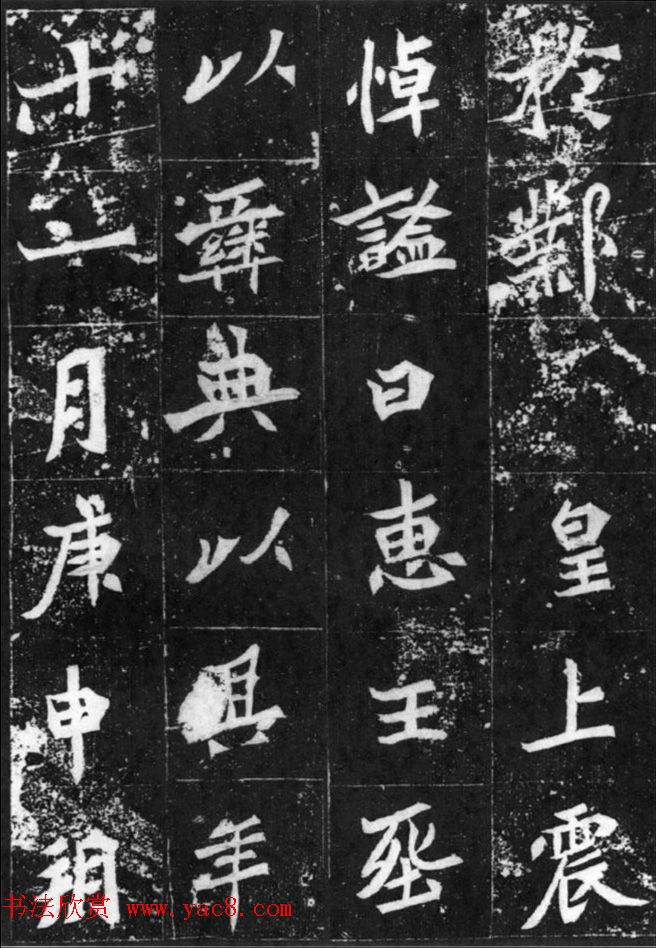 於鄴 皇上震
悼謚曰惠王葬
以彝典以其年
十二月庚申朔
书法欣赏 www.yac8.com